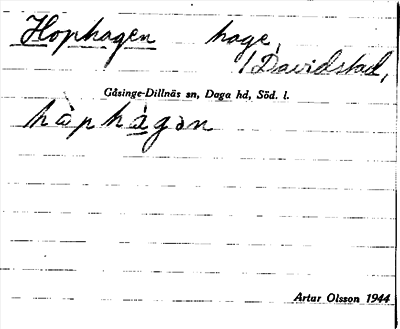 Hophagen hage,
/Davidstad,
Gåsinge-Dillnäs sn, Daga hd, Söd. l.
hàphágən
Artur Olsson 1944